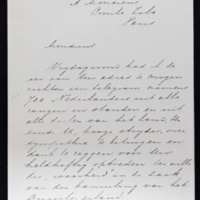 A Monsieur
Emile Zola
Paris
Monsieur
Vrijdagavond had ik de
eer aan Uw adres te mogen
richten een telegram namens
700 Nederlanders uit alle
rangen en standen en uit
alle deelen van het land, die
U, hooge strijder, hun
sympathie te betuigen en
dank te zeggen voor Uw
heldhaftig optreden ter wille
der waarheid in de zaak
van den banneling van het